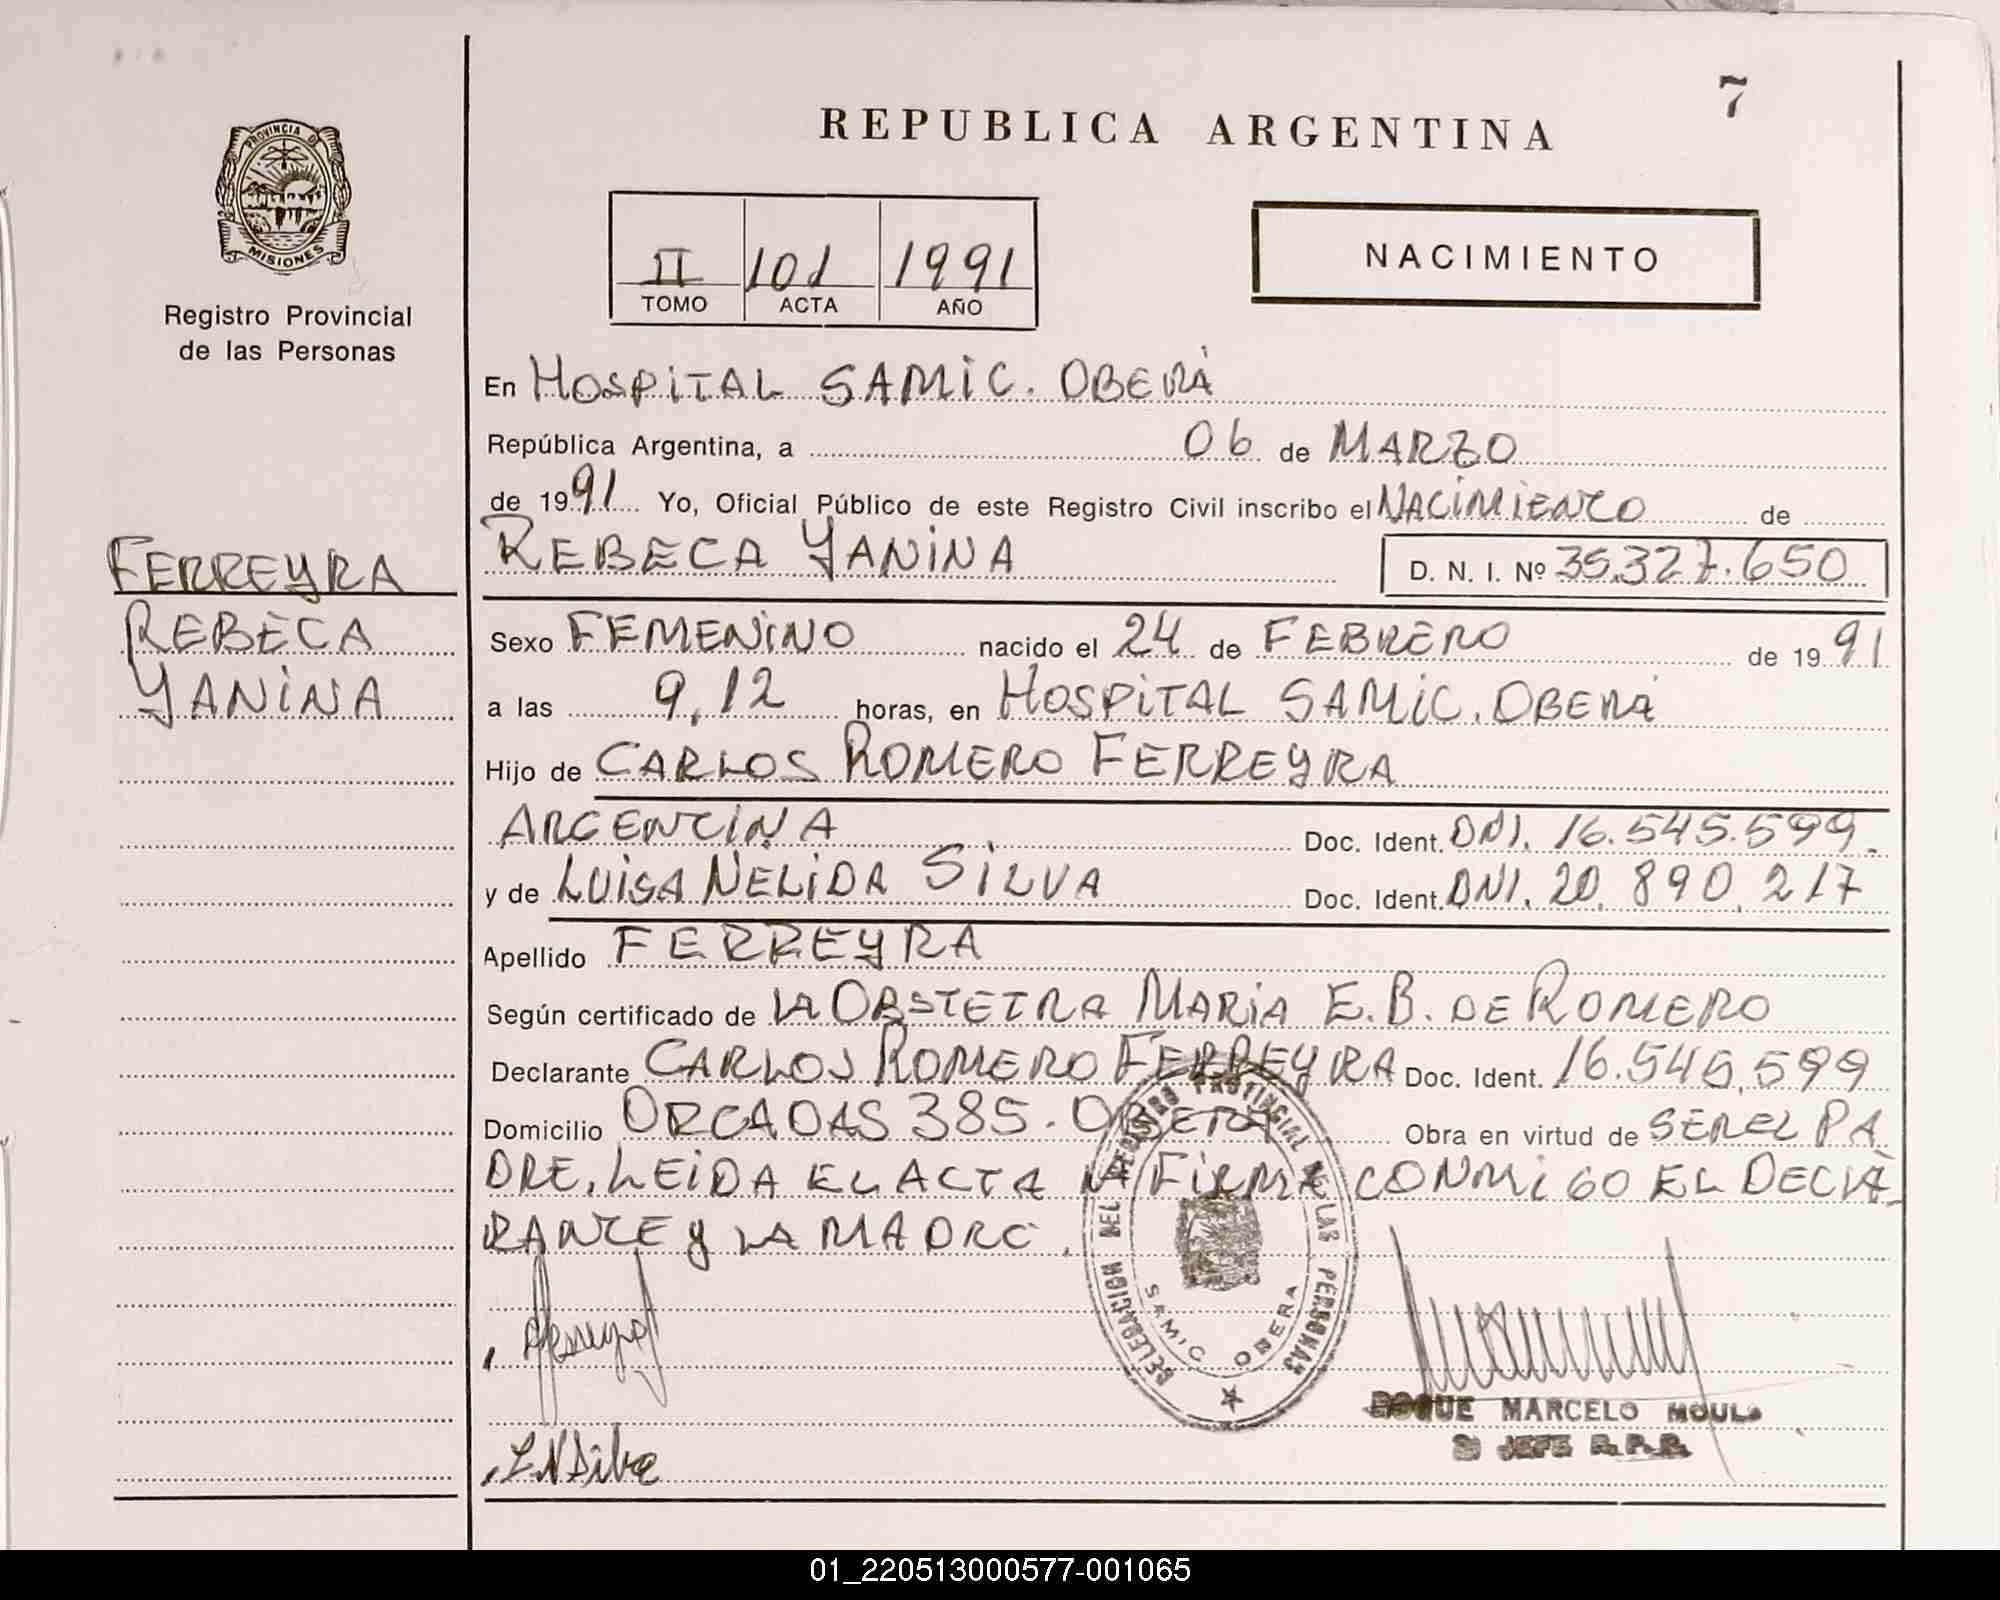 7
REPUBLICA ARGENTINA
PROVINCIA DE
MISIONES
Registro Provincial
de las Personas
II 101 1991
TOMO ACTA AÑO
NACIMIENTO
En HOSPITAL SAMIC. OBERÁ
República Argentina, a 06 de MARZO
de 1991 Yo, Oficial Público de este Registro Civil inscribo el NACIMIENTO de
REBECA YANINA D. N. I. Nº 35.327.650
FERREYRA
REBECA
YANINA
Sexo FEMENINO nacido el 24 de FEBRERO de 1991
a las 9,12 horas, en HOSPITAL SAMIC. OBERÁ
Hijo de CARLOS ROMERO FERREYRA
ARGENTINA Doc. Ident. DNI. 16.545.599.
y de LUISA NELIDA SILVA Doc. Ident. DNI. 20.890.217
Apellido FERREYRA
Según certificado de LA OBSTETRA MARIA E.B. DE ROMERO
Declarante CARLOS ROMERO FERREYRA Doc. Ident. 16.545.599
Domicilio ORCADAS 385. OBERA Obra en virtud de SER EL PA
DRE. LEIDA EL ACTA LA FIRMA CONMIGO EL DECLA-
RANTE Y LA MADRE.
DELEGACION DEL REGISTRO PROVINCIAL DE LAS PERSONAS
SAMIC OBERA
Ferreyra
L N Silva
ROQUE MARCELO
JEFE R.P.P.
01_220513000577-001065